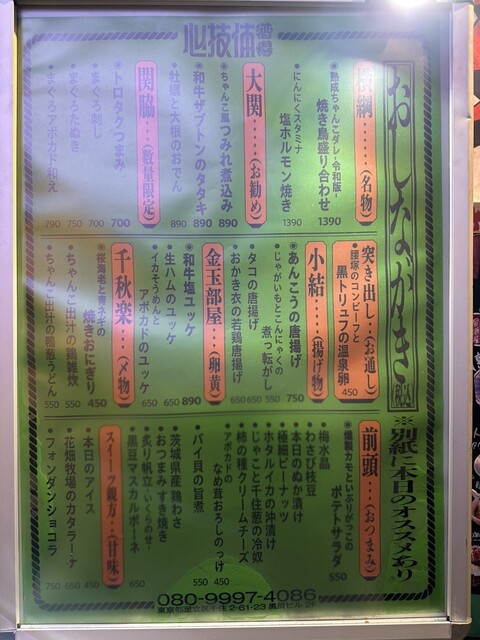 心技体
おしながき 税込
※別紙に本日のオススメあり
横綱……(名物)
◎熟成ちゃんこダレ-令和版-
焼き鳥盛り合わせ 1390
・にんにくスタミナ
塩ホルモン焼き 1390
大関……(お勧め)
◎ちゃんこ風つみれ煮込み 890
◎和牛ザブトンのタタキ 890
・牡蠣と大根のおでん 890
関脇…(数量限定)
・トロタクつまみ 700
・まぐろ刺し 700
・まぐろたぬき 750
・まぐろアボカド和え 790
突き出し…(お通し)
・腰塚のコンビーフと
黒トリュフの温泉卵 450
小結……(揚げ物)
◎あんこうの唐揚げ 750
・じゃがいもとこんにゃくの
煮っ転がし 550
・タコの唐揚げ 550
・おかき衣の若鶏唐揚げ 650
金玉部屋…(卵黄)
◎和牛塩ユッケ 890
・生ハムのユッケ 650
・イカそうめんと
アボカドのユッケ 650
千秋楽……(〆物)
・桜海老と青ネギの
焼きおにぎり 450
・ちゃんこ出汁の鶏雑炊 550
・ちゃんこ出汁の鴨葱うどん 550
前頭…(おつまみ)
◎燻製カモといぶりがっこの
ポテトサラダ 550
・梅水晶
・わさび枝豆
・本日のぬか漬け
・極細ピーナッツ
・ホタルイカの沖漬け
・じゃこと千住葱の冷奴
・柿の種クリームチーズ
・アボカドの
なめ茸おろしのっけ 450
・バイ貝の旨煮 550
・茨城県産鶏わさ
・おつまみすき焼き
・炙り帆立-いくらのせ-
・黒豆マスカルポーネ 650
スイーツ親方…(甘味)
・本日のアイス 450
・花畑牧場のカタラーナ 650
・フォンダンショコラ 750
080-9997-4086
東京都足立区千住2-61-23